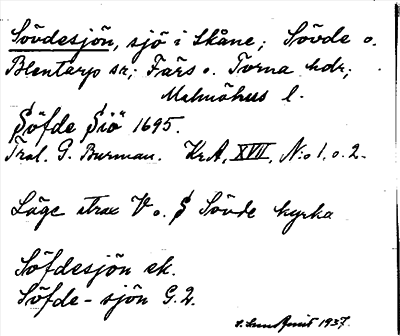 Sövdesjön, sjö i Skåne; Sövde o.
Blentarp sn; Färs o. Torna hdr;
Malmöhus l.
Söfde Siö 1695.
Tral. G. Burman. KrA, XVII, N:o 1, o. 2.
Läge strax V o. S Sövde kyrka
Söfdesjön ek.
Söfde-sjön G.2.
1937.